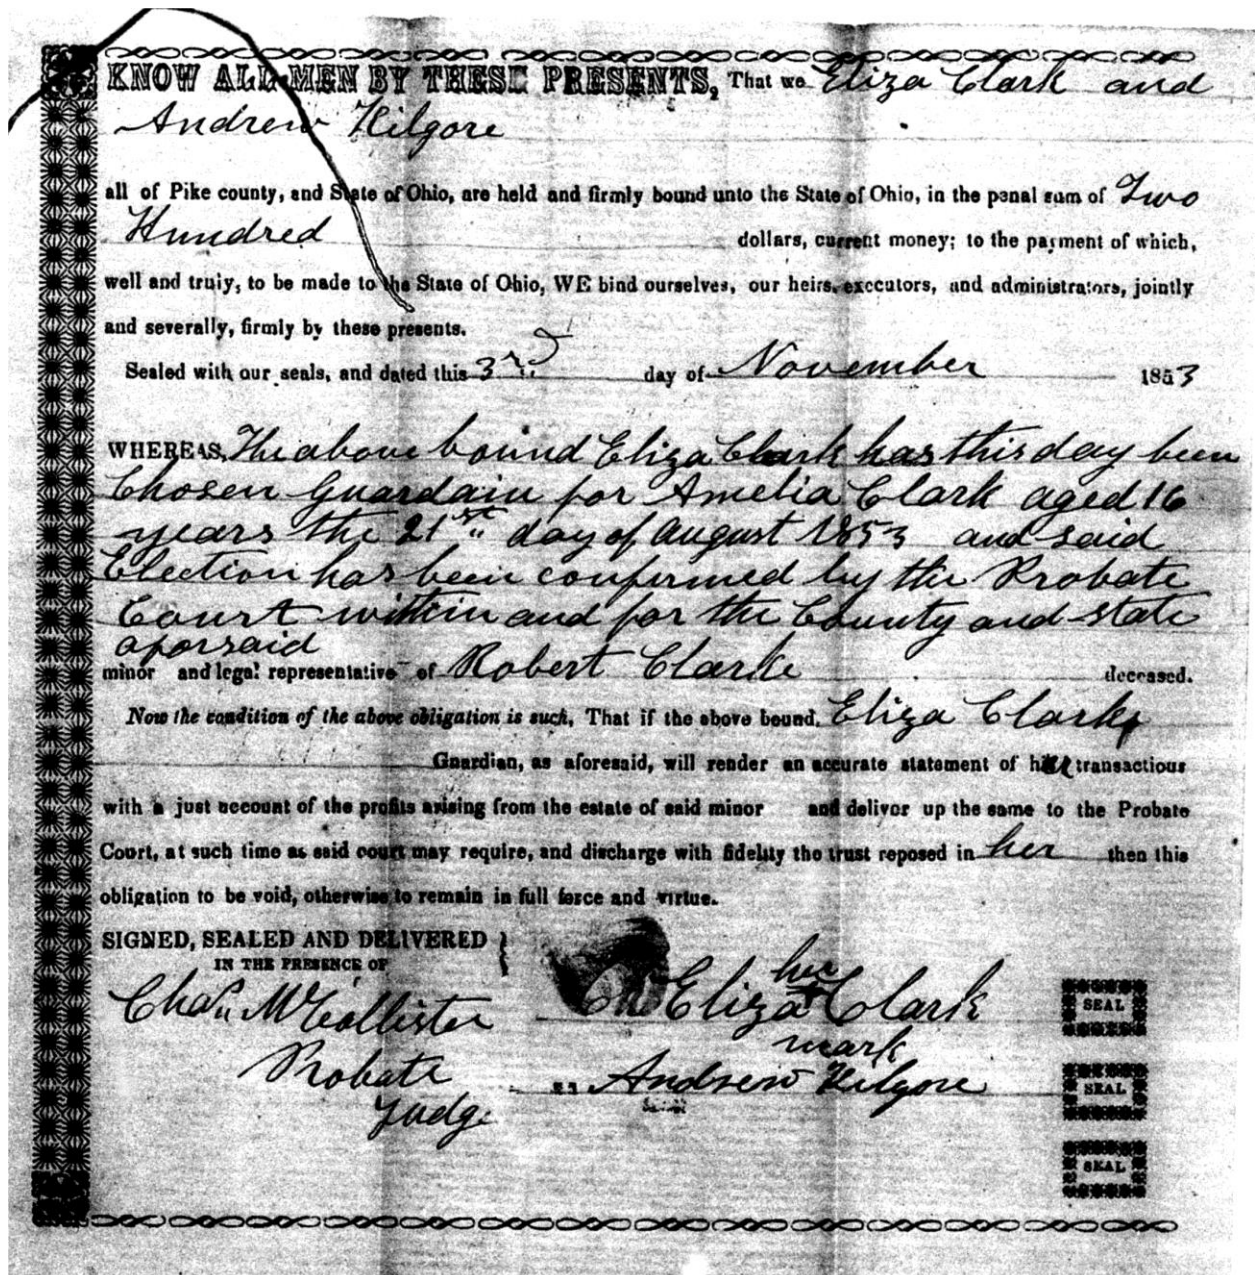 KNOW ALL MEN BY THESE PRESENTS, That we Eliza Clark and
Andrew Kilgore
all of Pike county, and State of Ohio, are held and firmly bound unto the State of Ohio, in the penal sum of Two
Hundred dollars, current money; to the payment of which,
well and truly, to be made to the State of Ohio, WE bind ourselves, our heirs, executors, and administrators, jointly
and severally, firmly by these presents.
Sealed with our seals, and dated this 3rd day of November 1853
WHEREAS, The above bound Eliza Clark has this day been
Chosen Guardain for Amelia Clark aged 16
years the 21st day of August 1853 and said
Election has been confirmed by the Probate
Court within and for the County and state
aforsaid
minor and legal representative of Robert Clarke deceased.
Now the condition of the above obligation is such, That if the above bound, Eliza Clark
Guardian, as aforesaid, will render an accurate statement of her transactions
with a just account of the profits arising from the estate of said minor and deliver up the same to the Probate
Court, at such time as said court may require, and discharge with fidelity the trust reposed in her then this
obligation to be void, otherwise to remain in full force and virtue.
SIGNED, SEALED AND DELIVERED
IN THE PRESENCE OF
her
Chas. McCollister Eliza + Clark SEAL
mark
Probate Andrew Kilgore SEAL
Judge
SEAL